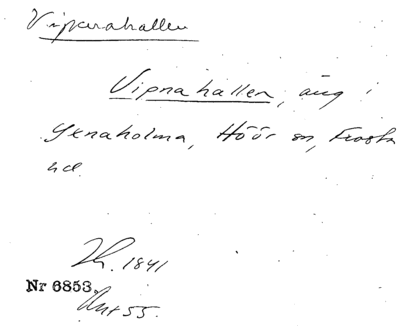 Vipnahallen
Vipnahallen, äng i
Yxnaholma, Höör sn, Frosta
hd.
1841
Nr 6853.
Ant 55.